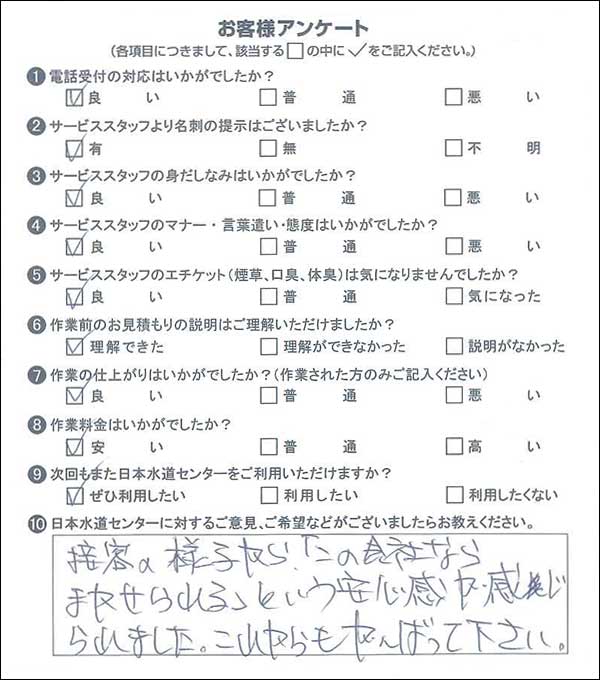 お客様アンケート
(各項目につきまして、該当する□の中に✓をご記入ください。)
❶電話受付の対応はいかがでしたか?
☑良い □普通 □悪い
❷サービススタッフより名刺の提示はございましたか?
☑有 □無 □不明
❸サービススタッフの身だしなみはいかがでしたか?
☑良い □普通 □悪い
❹サービススタッフのマナー・言葉遣い・態度はいかがでしたか?
☑良い □普通 □悪い
❺サービススタッフのエチケット(煙草、口臭、体臭)は気になりませんでしたか?
☑良い □普通 □気になった
❻作業前のお見積もりの説明はご理解いただけましたか?
☑理解できた □理解ができなかった □説明がなかった
❼作業の仕上がりはいかがでしたか?(作業された方のみご記入ください)
☑良い □普通 □悪い
❽作業料金はいかがでしたか?
☑安い □普通 □高い
❾次回もまた日本水道センターをご利用いただけますか?
☑ぜひ利用したい □利用したい □利用したくない
❿日本水道センターに対するご意見、ご希望などがございましたらお教えください。
接客の様子から、「この会社なら
まかせられる」という安心感が感じ
られました。これからもがんばって下さい。